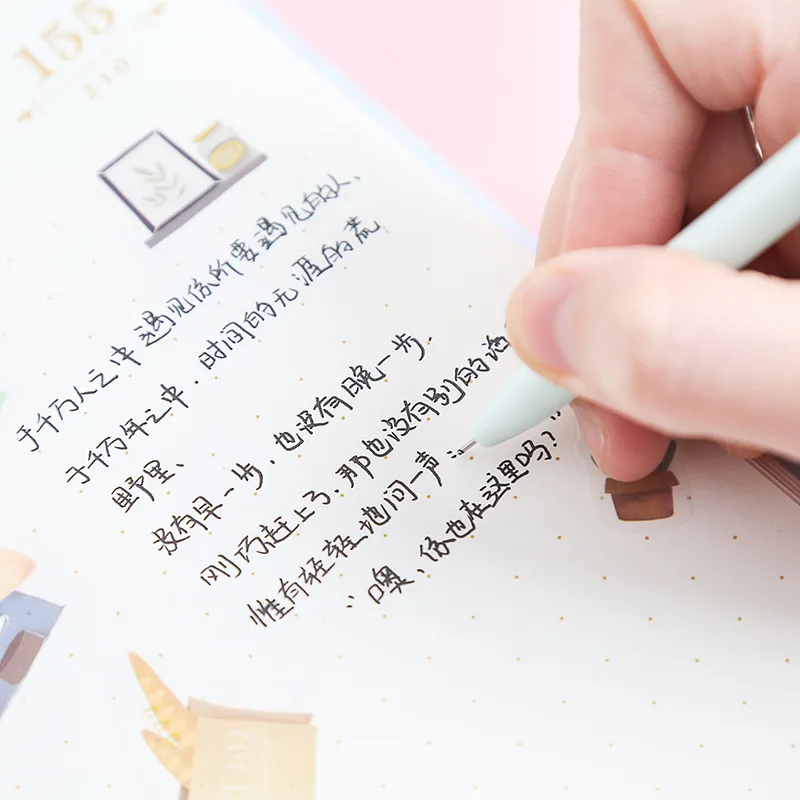 155
210
于千万人之中遇见你所要遇见的人、
于千万年之中，时间的无涯的荒
野里、
没有早一步，也没有晚一步.
刚巧赶上了：那也没有别的话
惟有轻轻地问一声：
“噢、你也在这里吗？”